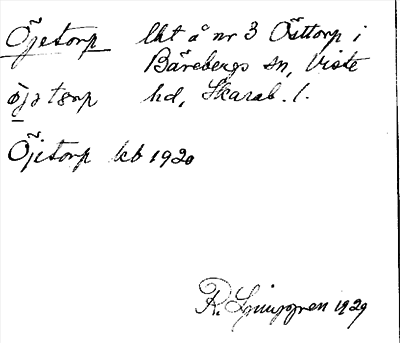 Öjetorp lht å nr 3 Östtorp i
Bärebergs sn, Viste
öjatωrp hd, Skarab. l.
Öjetorp kb 1920
R. Ljunggren 1929